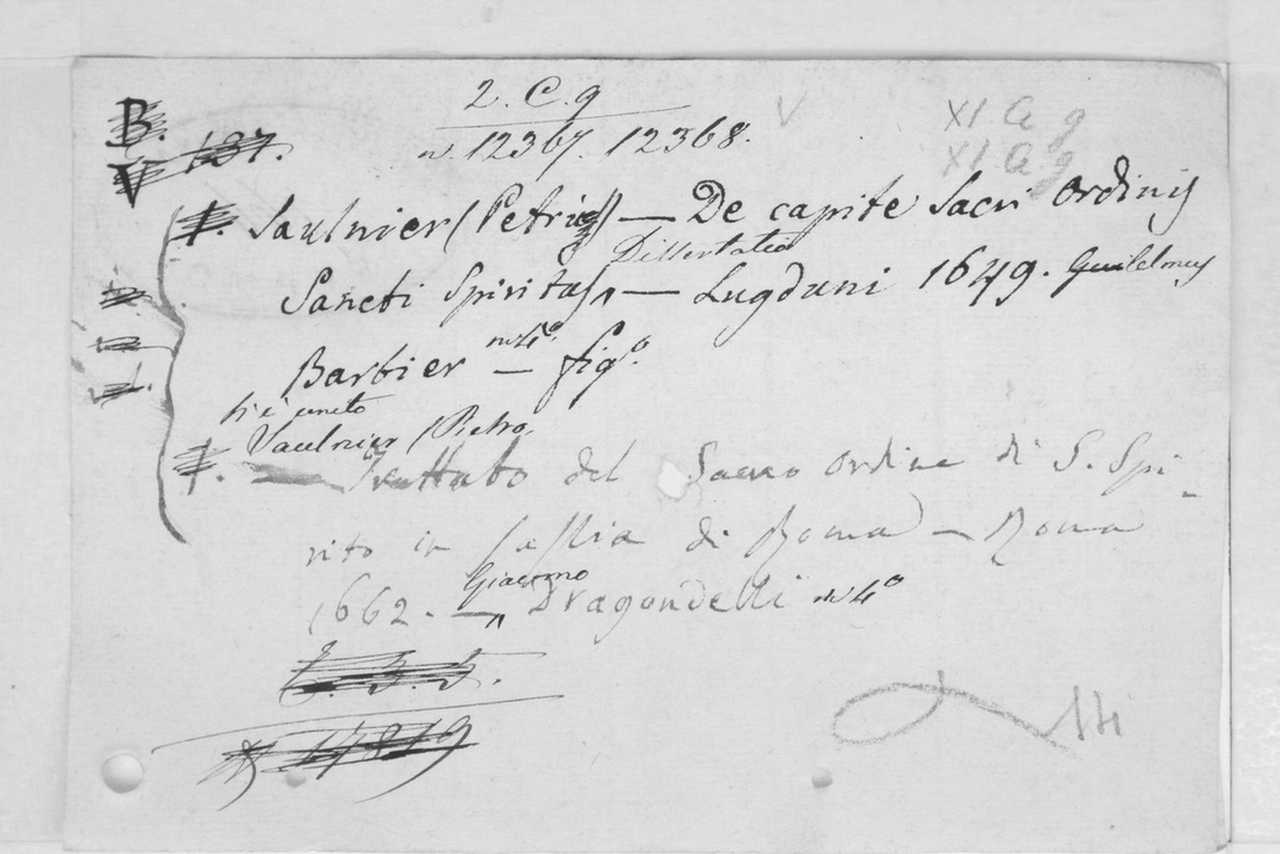 2. C. 9
B.
V 137.
n. 12367. 12368.
V
XI a g
XI a g
Saulnier (Petrus) — De capite Sacri Ordinis
Dissertatio
Sancti Spiritus — Lugduni 1649. Guilelmus
Barbier — in 4°. fig°.
si è unito
Saulnier (Pietro
Trattato del Sacro Ordine di S. Spi-
rito in Sassia di Roma — Roma
Giacomo
1662. — Dragondelli in 4°
17819